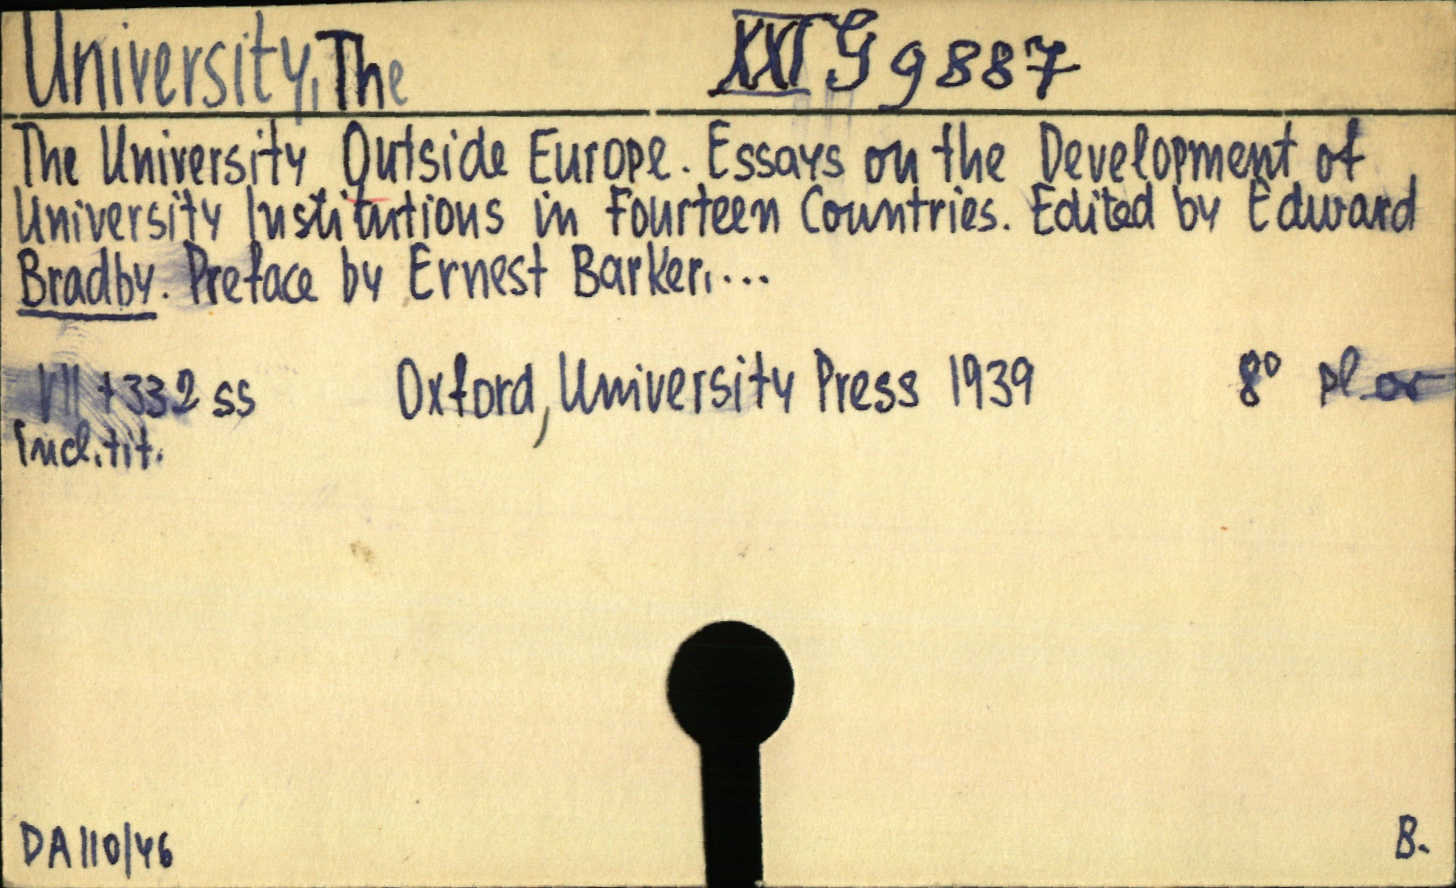 University, The XXI G 9887
The University Outside Europe. Essays on the Development of
University Institutions in Fourteen Countries. Edited by Edward
Bradby. Preface by Ernest Barker, ...
VII + 332 ss Oxford, University Press 1939 8° pl. or
incl. tit.
DA 110/46 B.